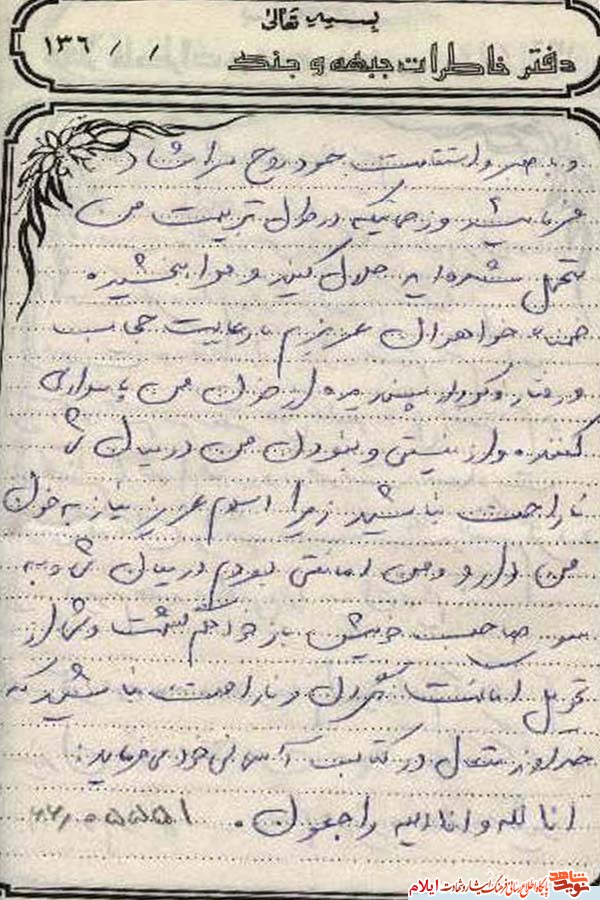 بسمه تعالی
دفتر خاطرات جبهه و جنگ / / ۱۳۶
و با صبر و استقامت خود روح مرا شاد
فرمائید و زحماتیکه در طول تربیت من
متحمل شده اید حلال کنید و مرا ببخشید
ضمناً خواهران عزیزم با رعایت حجاب
و رفتار و کردار از خون من پاسداری
کنند و از نیستی و نبودن من در میان شما
ناراحت نباشید زیرا اسلام عزیز نیاز به خون
من دارد و من امانتی بودم در میان شما و به
سوی صاحب خویش باز خواهم گشت و شما از
تحویل امانت نگران و ناراحت نباشید که
خداوند متعال در کتاب آسمانی خود می فرماید:
انا لله و انا الیه راجعون.
نوید شاهد پایگاه اطلاع رسانی فرهنگ ایثار و شهادت ایلام